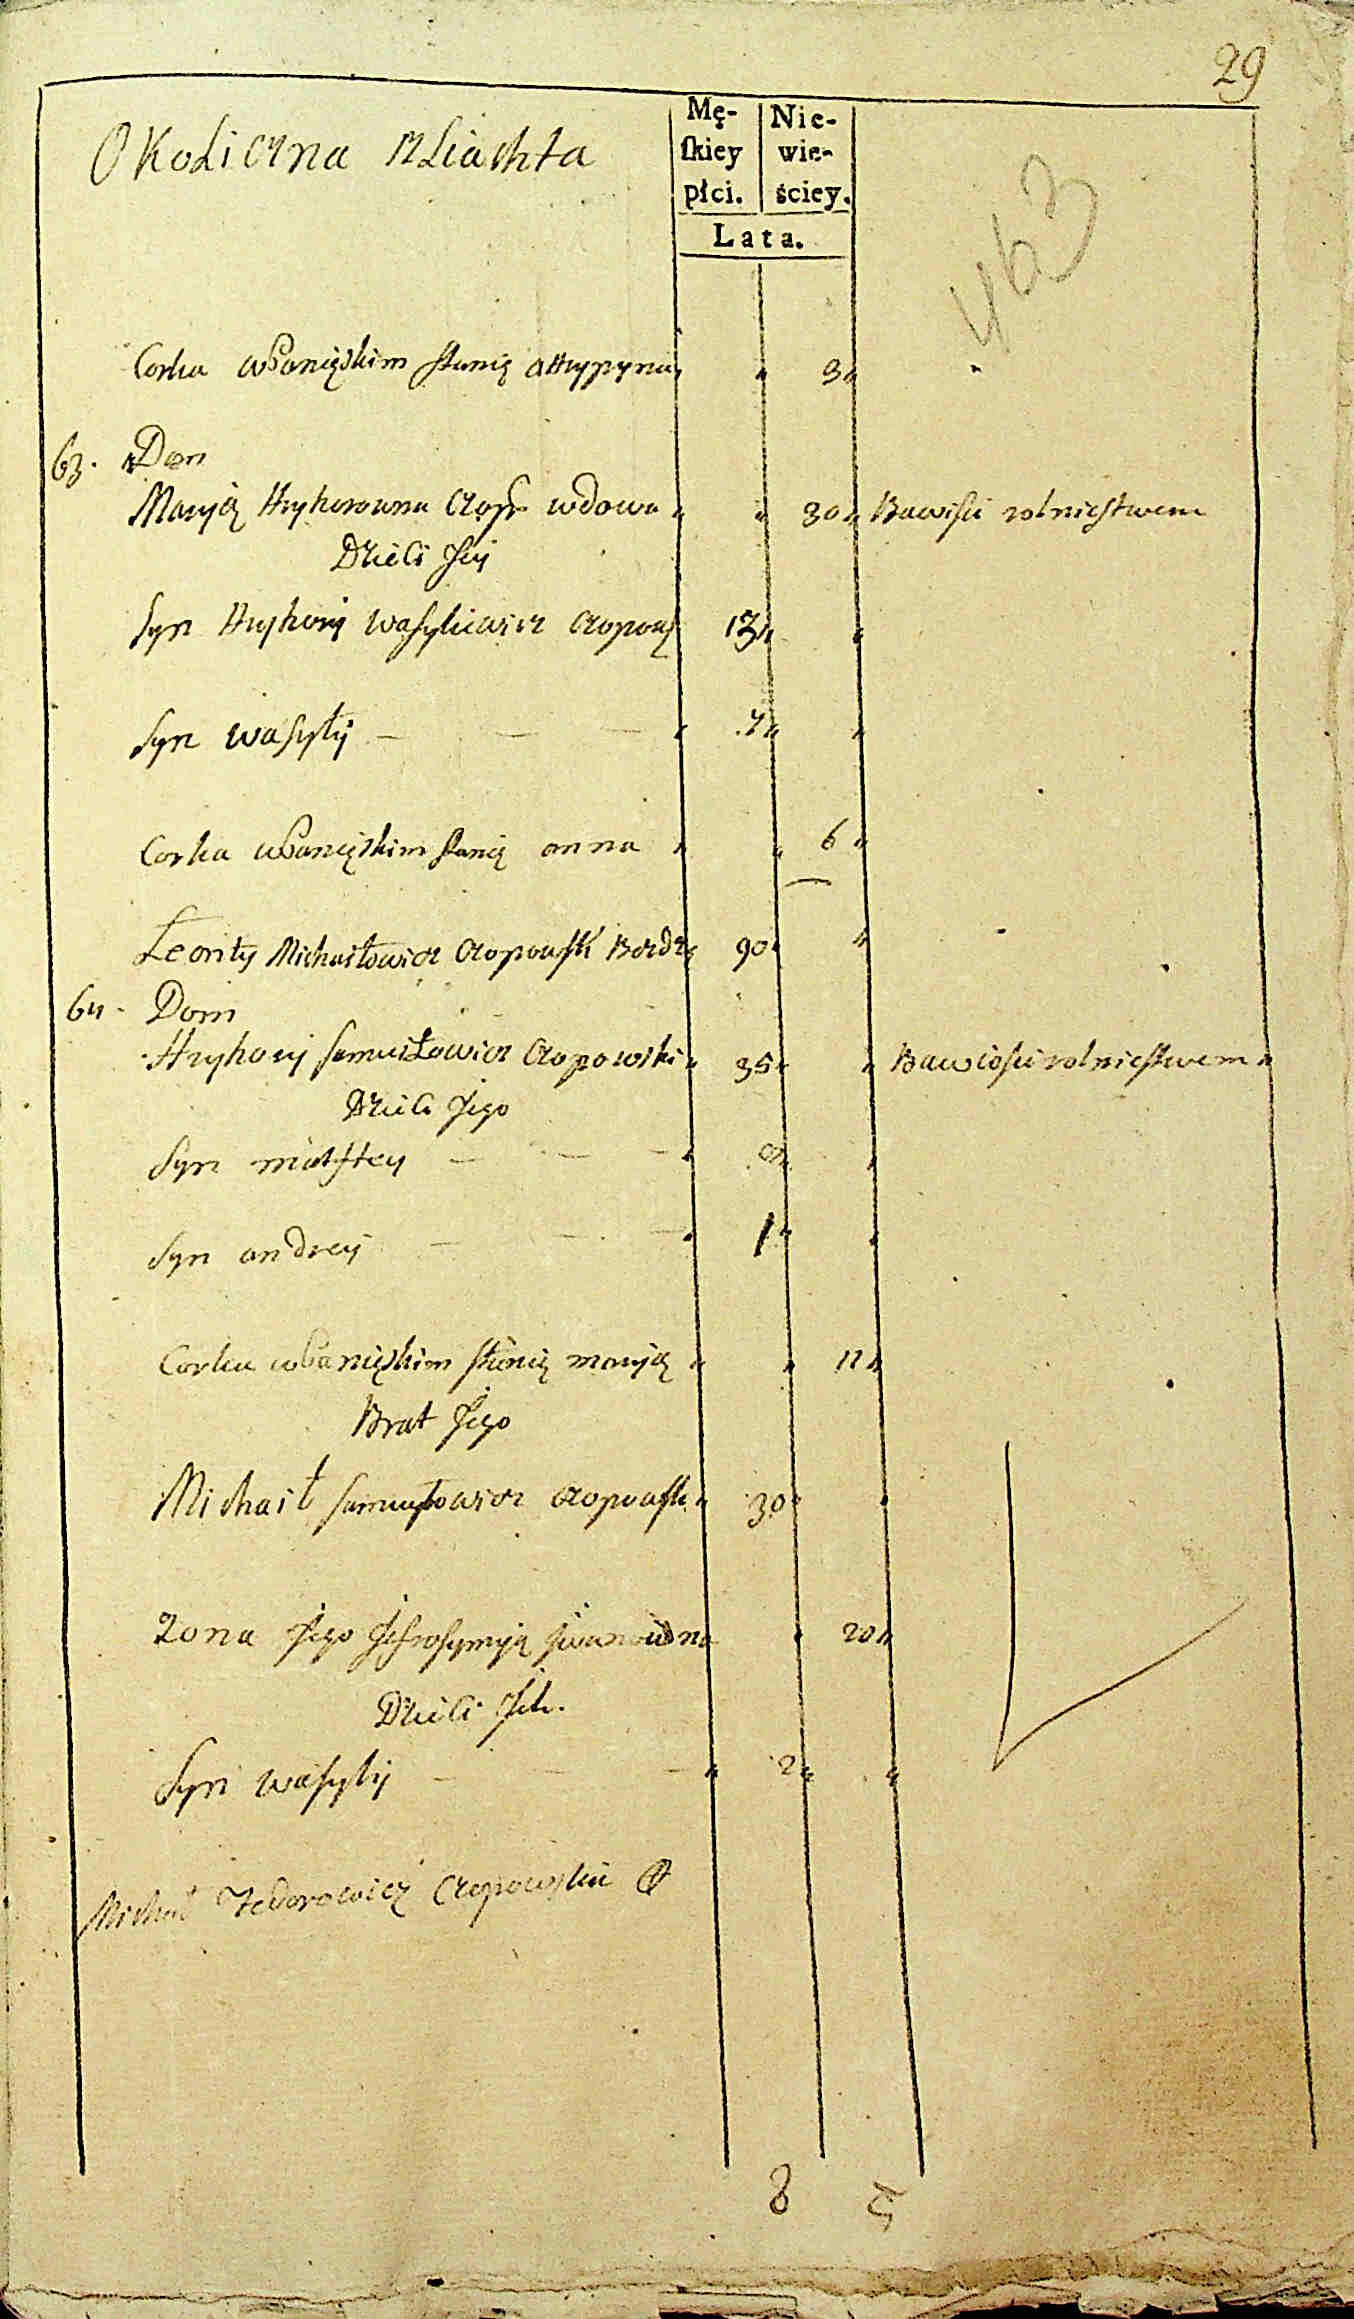 29
Okoliczna szliachta
Mę-
ſkiey
płci.
Nie-
wie-
ściey.
Lata.
463
Corka w Panięskim stanię ahrypyna " " 3 "
63. Dom
Maryią Hryhorowna Czop wdowa " " 30 " Bawisię rolnictwem
Dzieci Jey
Syn Hryhory Wasyliewicz Czopows 13 " "
Syn Wasyly — — — " 7 " "
Corka w Panięskim stanię anna " " 6 "
Leonty Michaiłowicz Czopowski 90 " "
64. Dom
Hryhory Samuiłowicz Czopowski " 35 " " Bawiosię rolnictwem "
Dzieci Jego
Syn matfiey — — — " 8 " "
Syn andrey — — — " 1 " "
Corka w Panięskim stanię maryią " " 11 "
Brat Jego
Michaił Samuyłowicz Czopowski " 30 " "
Zona Jego Jefrosyniją Jwanowna " 20 "
Dzieci Jch.
Syn wasyly — — — " 2 " "
Michał Fedorowicz Czopowski
8 5